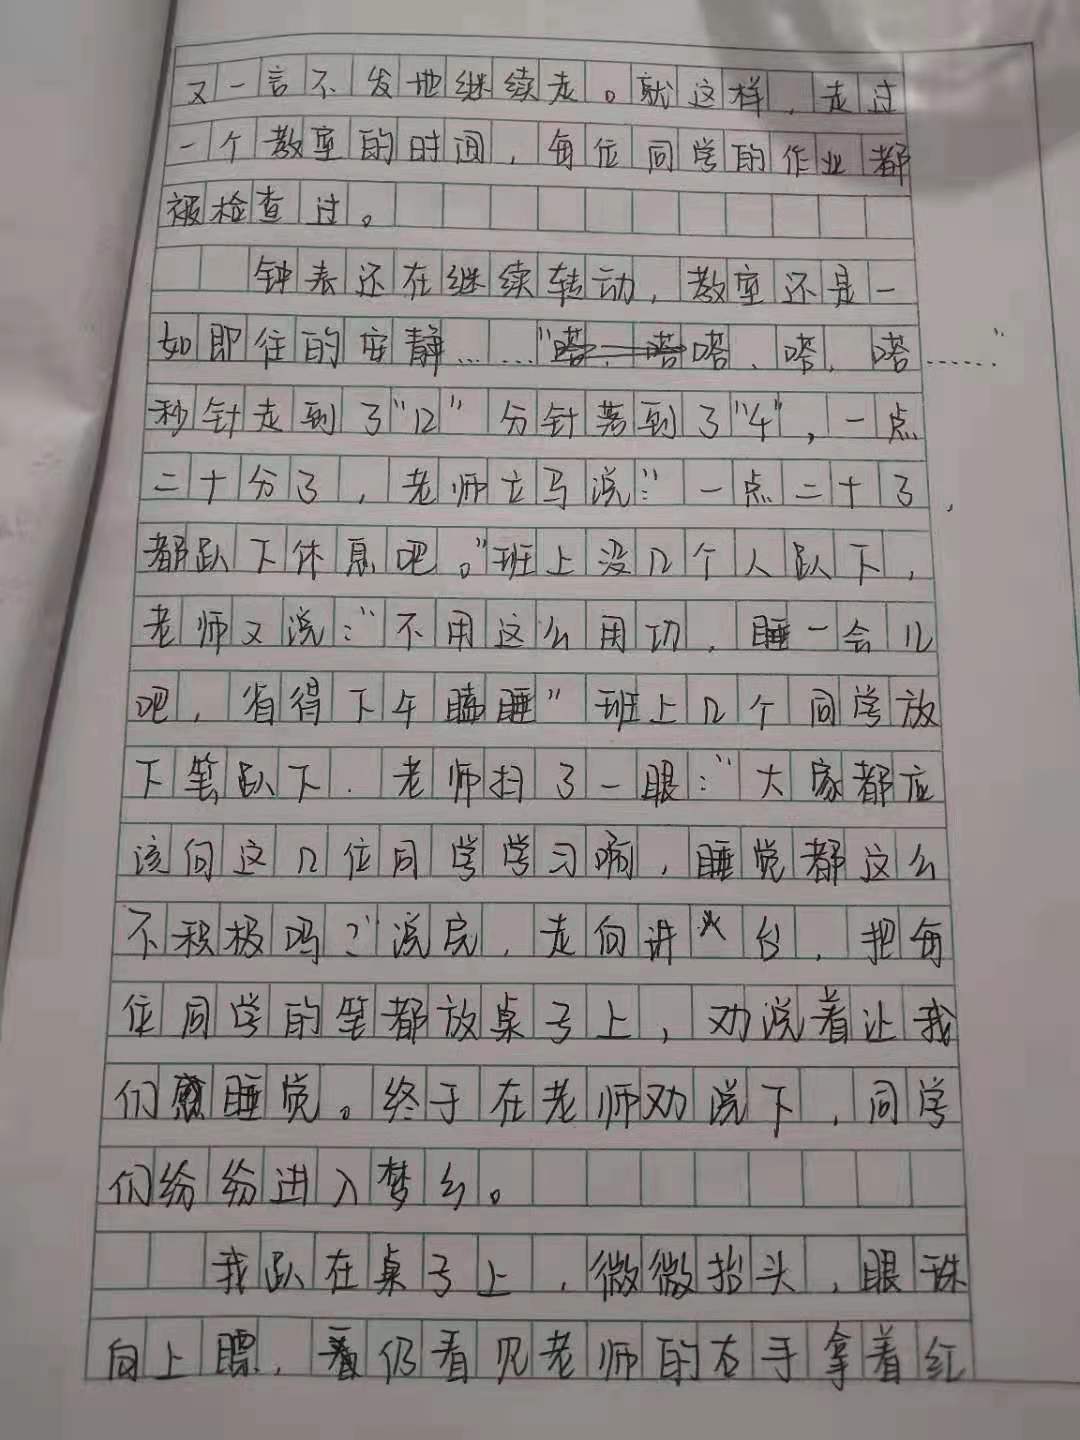 又一言不发地继续走。就这样，走过
一个教室的时间，每位同学的作业都
被检查过。
钟表还在继续转动，教室还是一
如即往的安静……“嗒、嗒、嗒……”
秒针走到了“12”分针落到了“4”，一点
二十分了，老师立马说：“一点二十了，
都趴下休息吧。”班上没几个人趴下，
老师又说：“不用这么用功，睡一会儿
吧，省得下午瞌睡”班上几个同学放
下笔趴下．老师扫了一眼：“大家都应
该向这几位同学学习啊，睡觉都这么
不积极吗？”说完，走向讲台，把每
位同学的笔都放桌子上，劝说着让我
们睡觉。终于在老师劝说下，同学
们纷纷进入梦乡。
我趴在桌子上，微微抬头，眼珠
向上瞟，仍看见老师的右手拿着红